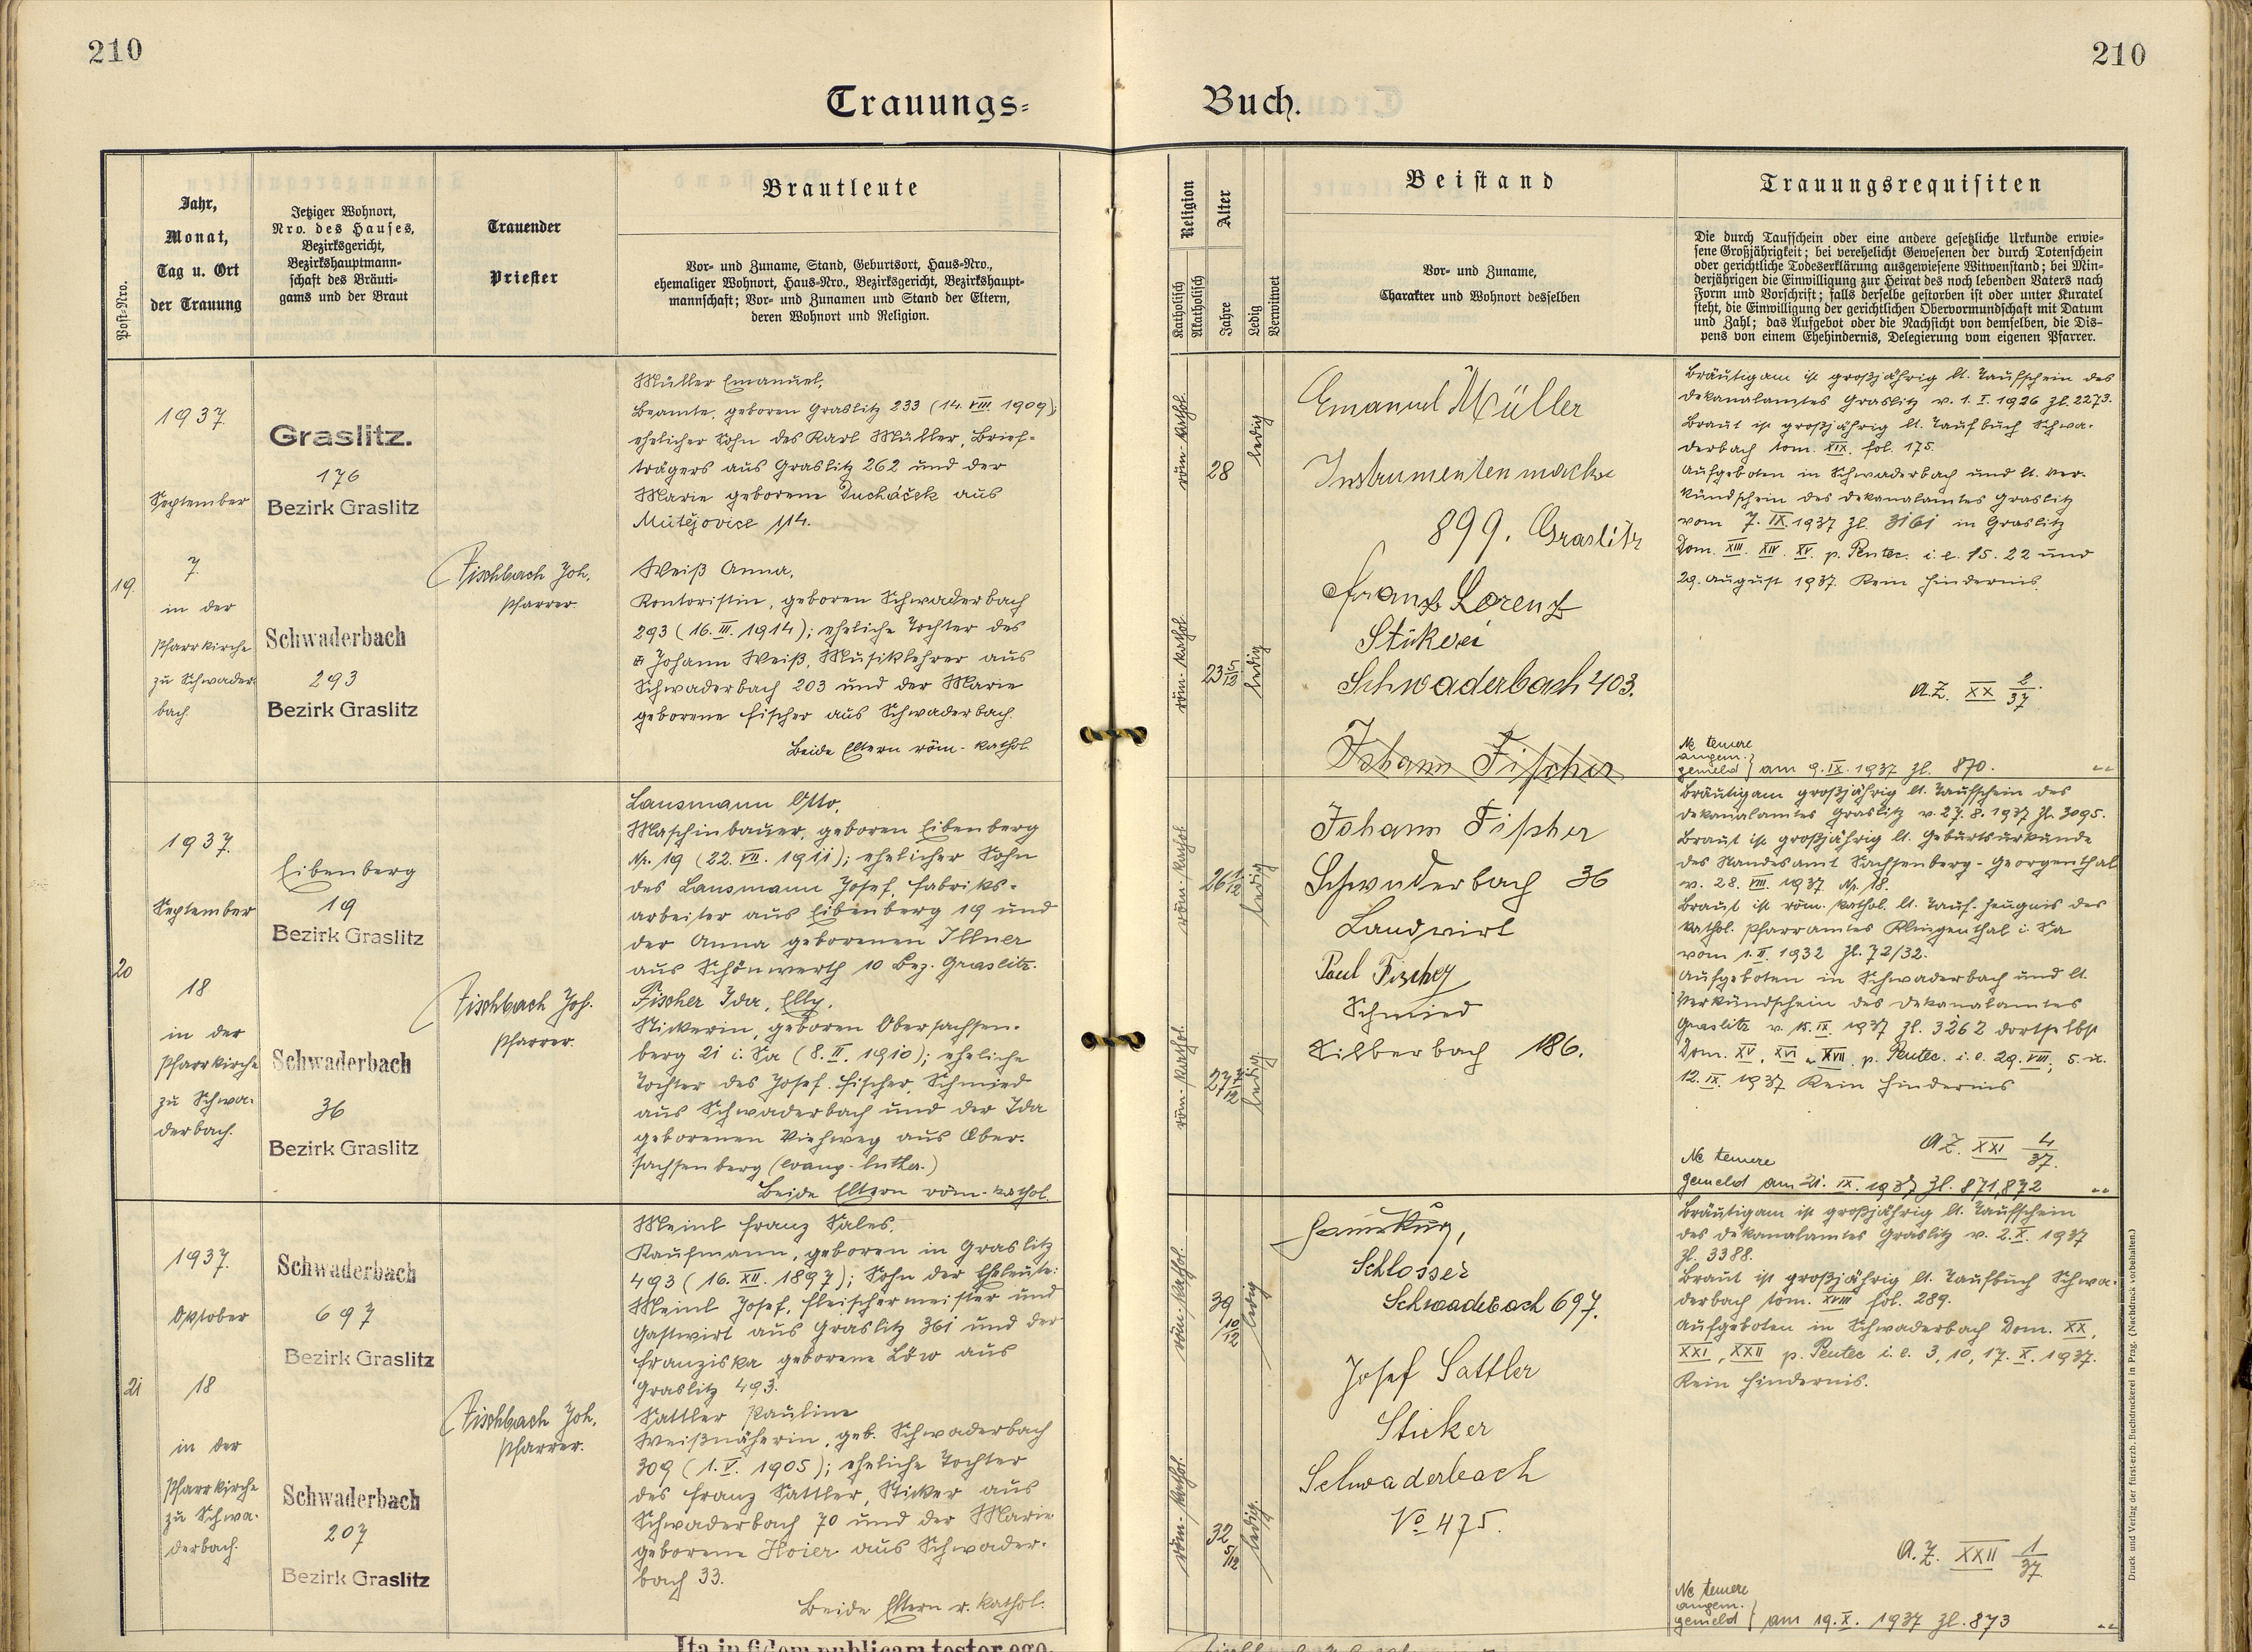 210
210
Trauungs-
Buch.
Post-Nro.
Jahr,
Monat,
Tag u. Ort
der Trauung
Jetziger Wohnort,
Nro. des Hauses,
Bezirksgericht,
Bezirkshauptmann-
schaft des Bräuti-
gams und der Braut
Trauender
Priester
Brautleute
Vor- und Zuname, Stand, Geburtsort, Haus-Nro.,
ehemaliger Wohnort, Haus-Nro., Bezirksgericht, Bezirkshaupt-
mannschaft; Vor- und Zunamen und Stand der Eltern,
deren Wohnort und Religion.
Religion
Katholisch
Akatholisch
Alter
Jahre
Ledig
Verwitwet
Beistand
Vor- und Zuname,
Charakter und Wohnort desselben
Trauungsrequisiten
Die durch Taufschein oder eine andere gesetzliche Urkunde erwie-
sene Großjährigkeit; bei verehelicht Gewesenen der durch Totenschein
oder gerichtliche Todeserklärung ausgewiesene Witwenstand; bei Min-
derjährigen die Einwilligung zur Heirat des noch lebenden Vaters nach
Form und Vorschrift; falls derselbe gestorben ist oder unter Kuratel
steht, die Einwilligung der gerichtlichen Obervormundschaft mit Datum
und Zahl; das Aufgebot oder die Nachsicht von demselben, die Dis-
pens von einem Ehehindernis, Delegierung vom eigenen Pfarrer.
19.
1937.
September
7.
in der
Pfarrkirche
zu Schwader-
bach.
Graslitz.
176
Bezirk Graslitz
Schwaderbach
293
Bezirk Graslitz
Fischbach Joh.
Pfarrer.
Müller Emanuel,
Beamte, geboren Graslitz 233 (14. VIII. 1909);
ehelicher Sohn des Karl Müller, Brief-
trägers aus Graslitz 262 und der
Marie geborene Ducháček aus
Mutějovice 114.
Weiß Anna,
Kontoristin, geboren Schwaderbach
293 (16. III. 1914); eheliche Tochter des
Johann Weiß, Musiklehrer aus
Schwaderbach 203 und der Marie
geborene Fischer aus Schwaderbach.
Beide Eltern röm.-kathol.
röm.-kathol.
28
ledig
röm.-kathol.
23 5/12
ledig
Emanuel Müller
Instrumentenmacher
899. Graslitz
Franz Lorenz
Stikerei
Schwaderbach 403.
Johann Fischer
Bräutigam ist großjährig lt. Taufschein des
Dekanalamtes Graslitz v. 1. I. 1926 Zl. 2273.
Braut ist großjährig lt. Taufbuch Schwa-
derbach tom. XIX. fol. 175.
Aufgeboten in Schwaderbach und lt. Ver-
kündschein des Dekanalamtes Graslitz
vom 7. IX. 1937 Zl. 3161 in Graslitz
Dom. XIII. XIV. XV. p. Pentec. i. e. 15. 22 und
29. August 1937. Kein Hindernis.
A.Z. XX 2/37.
Ne temere
angem.
gemeld } am 9. IX. 1937 Zl. 870.
20
1937.
September
18
in der
Pfarrkirche
zu Schwa-
derbach.
Eibenberg
19
Bezirk Graslitz
Schwaderbach
36
Bezirk Graslitz
Fischbach Joh.
Pfarrer.
Lansmann Otto,
Maschinbauer, geboren Eibenberg
Nr. 19 (22. VII. 1911); ehelicher Sohn
des Lansmann Josef, Fabriks-
arbeiter aus Eibenberg 19 und
der Anna geborenen Illner
aus Schönwerth 10 Bez. Graslitz.
Fischer Ida, Elly,
Stickerin, geboren Obersachsen-
berg 21 i. Sa (8. II. 1910); eheliche
Tochter des Josef Fischer, Schmied
aus Schwaderbach und der Ida
geborenen Viehweg aus Ober-
sachsenberg (evang.-luther.)
Beide Eltern röm.-kathol.
röm.-kathol.
26 1/12
ledig
röm.-kathol.
27 7/12
ledig
Johann Fischer
Schwaderbach 36
Landwirt
Paul Fischer
Schmied
Silberbach 186.
Bräutigam großjährig lt. Taufschein des
Dekanalamtes Graslitz v. 27. 8. 1937 Zl. 3095.
Braut ist großjährig lt. Geburtsurkunde
des Standesamt Sachsenberg-Georgenthal
v. 28. VIII. 1937 Nr. 18.
Braut ist röm. kathol. lt. Tauf-Zeugnis des
kathol. Pfarramtes Klingenthal i. Sa
vom 1. II. 1932 Zl. 72/32.
Aufgeboten in Schwaderbach und lt.
Verkündschein des Dekanalamtes
Graslitz v. 15. IX. 1937 Zl. 3262 dortselbst
Dom. XV, XVI u. XVII. p. Pentec. i. e. 29. VIII, 5. u.
12. IX. 1937 Kein Hindernis
A.Z. XXI 4/37.
Ne temere
gemeld am 21. IX. 1937 Zl. 871,872
21
1937.
Oktober
18
in der
Pfarrkirche
zu Schwa-
derbach.
Schwaderbach
697
Bezirk Graslitz
Schwaderbach
207
Bezirk Graslitz
Fischbach Joh.
Pfarrer.
Meinl Franz Sales,
Kaufmann, geboren in Graslitz
493 (16. XII. 1897); Sohn der Eheleute:
Meinl Josef, Fleischermeister und
Gastwirt aus Graslitz 361 und der
Franziska geborene Löw aus
Graslitz 493.
Sattler Pauline
Weißnäherin, geb. Schwaderbach
309 (1. V. 1905); eheliche Tochter
des Franz Sattler, Sticker aus
Schwaderbach 70 und der Marie
geborene Hoier aus Schwader-
bach 33.
Beide Eltern r. kathol.
röm.-kathol.
39 10/12
ledig
röm.-kathol.
32 5/12
ledig.
Schlosser
Schwaderbach 697.
Josef Sattler
Sticker
Schwaderbach
No 475.
Bräutigam ist großjährig lt. Taufschein
des Dekanalamtes Graslitz v. 2. X. 1937
Zl. 3388.
Braut ist großjährig lt. Taufbuch Schwa-
derbach tom. XVIII fol. 289.
Aufgeboten in Schwaderbach Dom. XX,
XXI, XXII p. Pentec i. e. 3, 10, 17. X. 1937.
Kein Hindernis.
A.Z. XXII 1/37
Ne temere
angem.
gemeld } am 19. X. 1937 Zl. 873
Druck und Verlag der fürst-erzb. Buchdruckerei in Prag. (Nachdruck vorbehalten.)
Ita in fidem publicam testor ego.